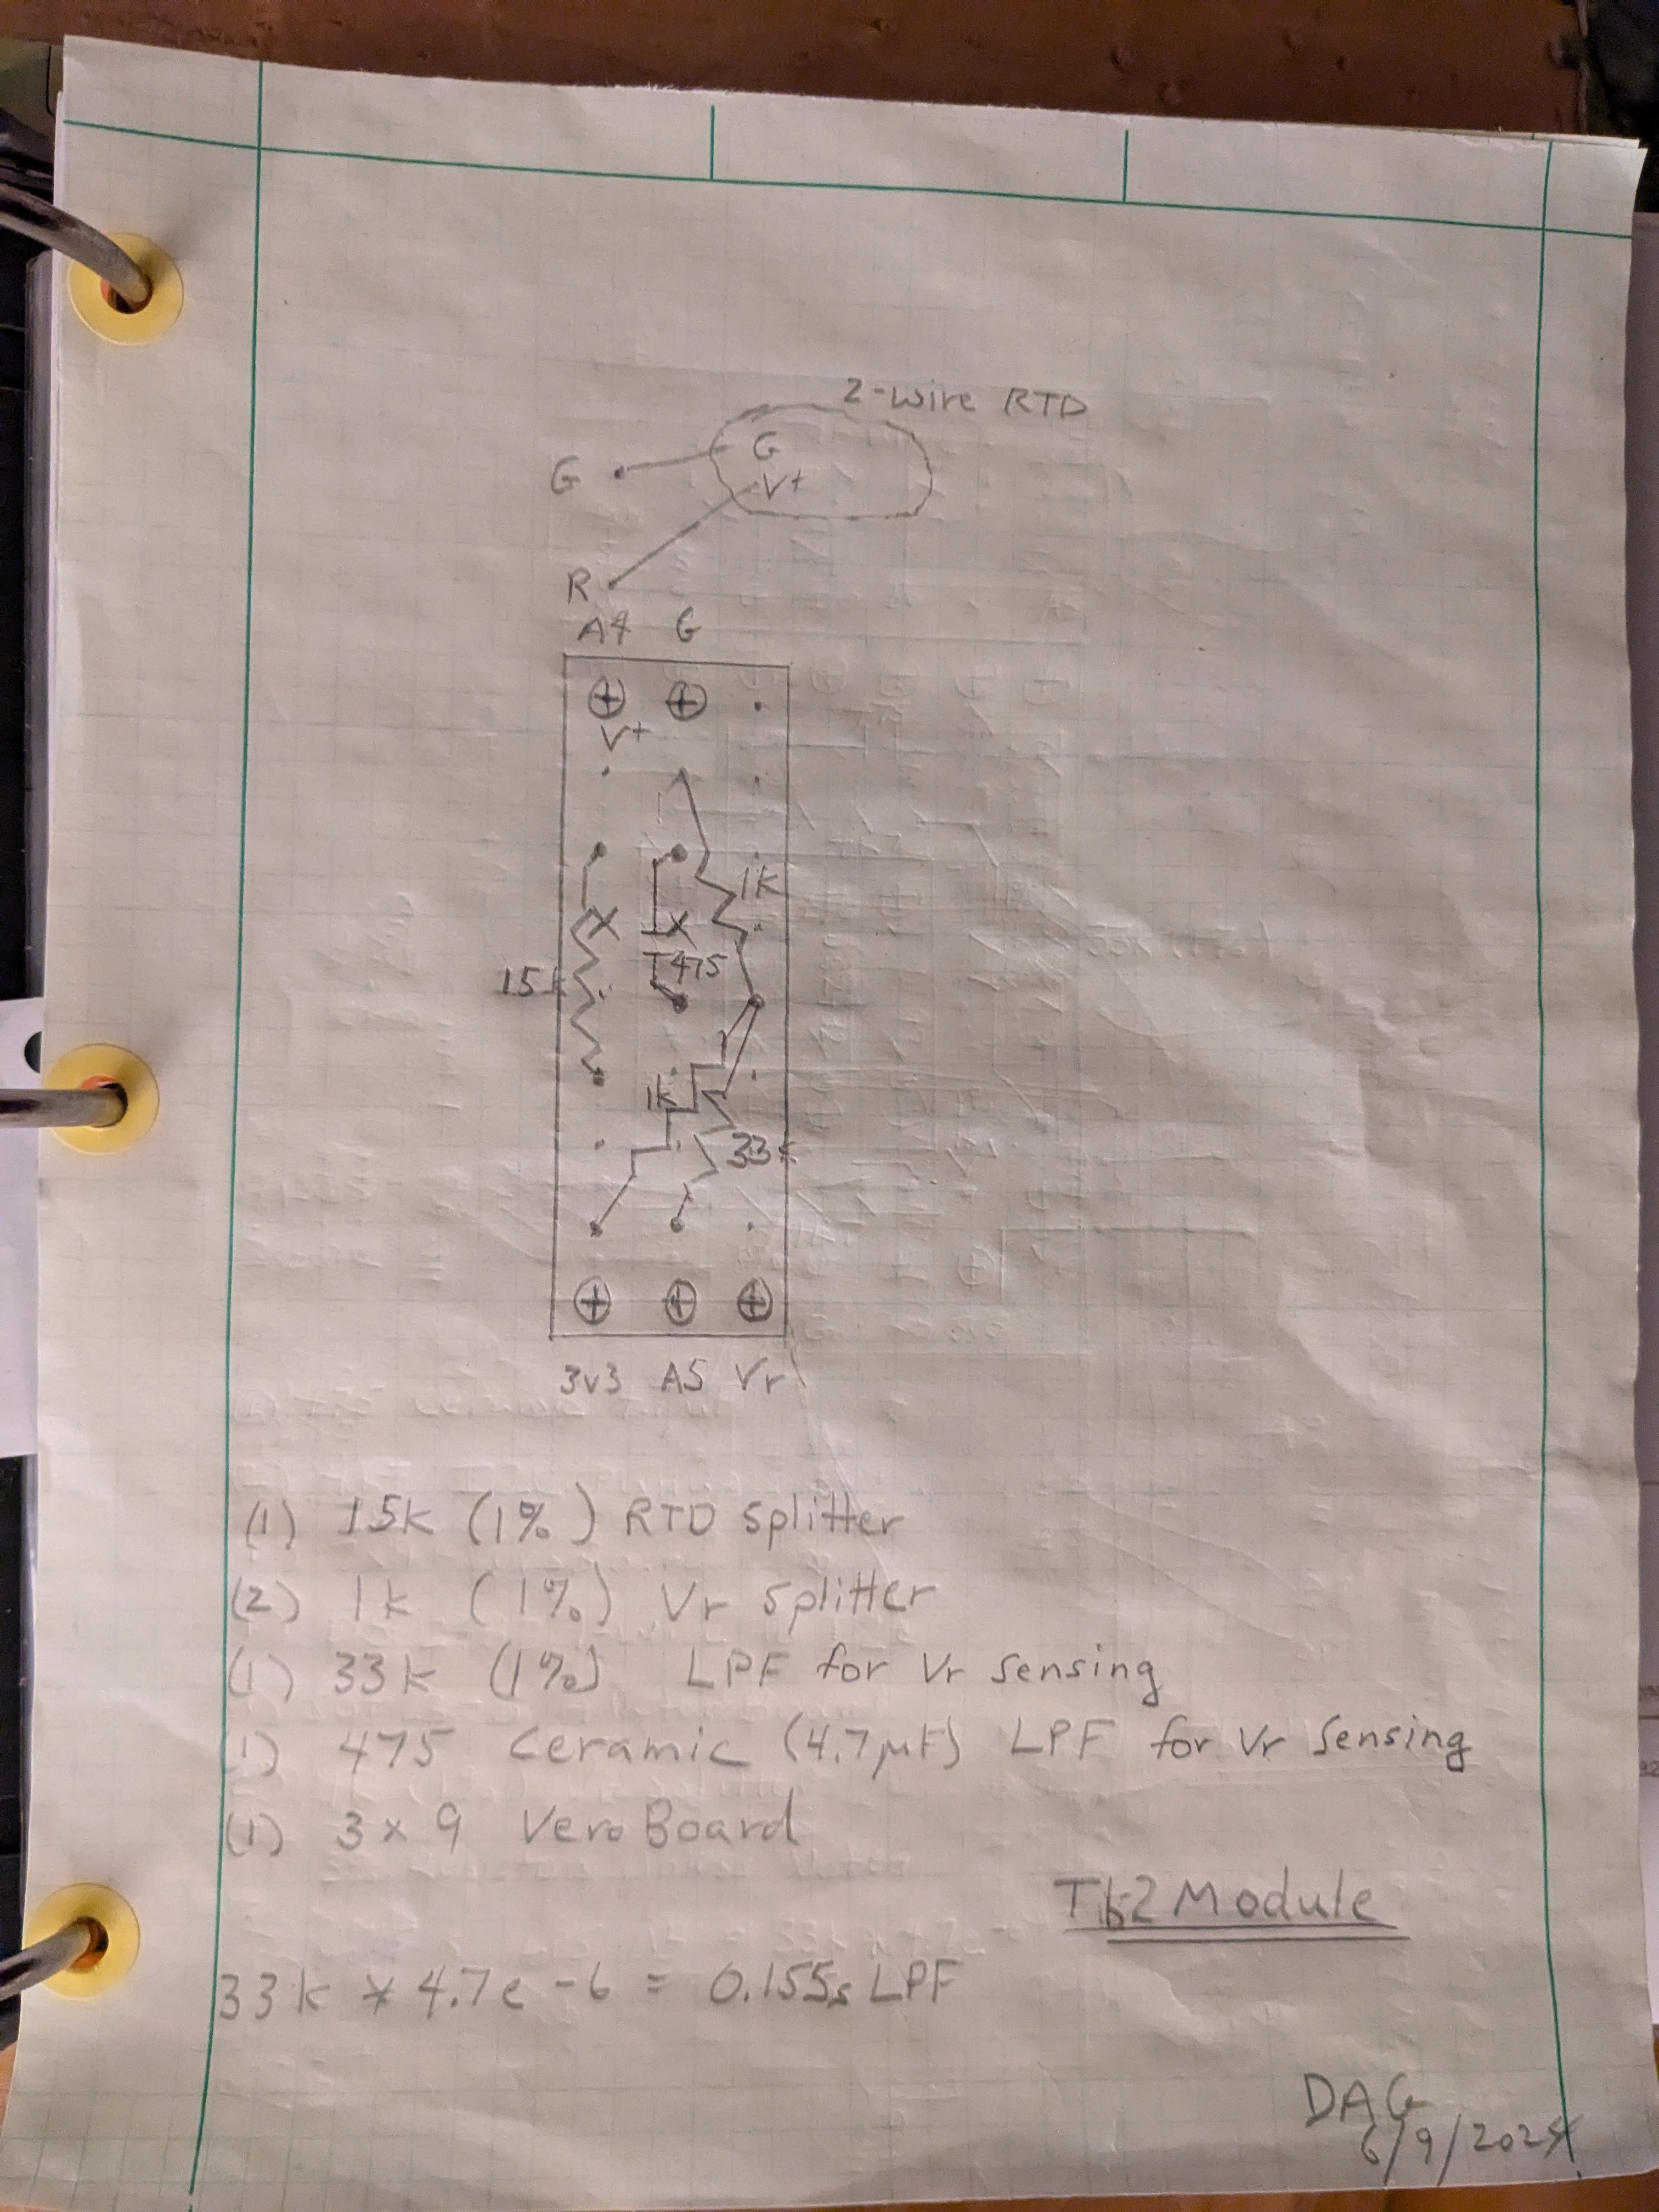 2-wire RTD
G G
V+
R
A4 G
V+
1k
X X
15k 475
1k
33k
3v3 A5 Vr
(1) 15k (1%) RTD splitter
(2) 1k (1%) Vr splitter
(1) 33k (1%) LPF for Vr sensing
(1) 475 ceramic (4.7µF) LPF for Vr sensing
(1) 3x9 VeroBoard
Tb2 Module
33k * 4.7e-6 = 0.155s LPF
DAG
6/9/2024